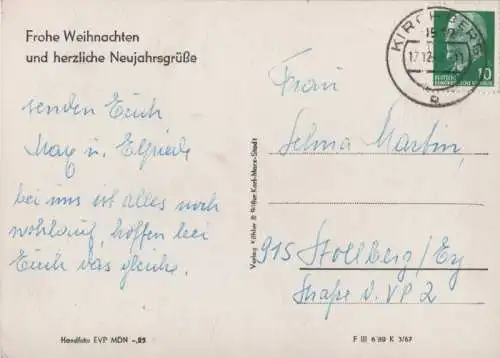 Frohe Weihnachten
und herzliche Neujahrsgrüße
senden Euch
Max u. Elfriede
bei uns ist alles noch
wohlauf, hoffen bei
Euch das gleiche.
Handfoto EVP MDN -,25
Verlag Köhler & Witter Karl-Marx-Stadt
KIRCHBERG
17.12.
DEUTSCHE
DEMOKRATISCHE REPUBLIK
10
Frau
Selma Martin,
915 Stollberg/Erg
Straße d. VP 2
F III 6 89 K 3/67